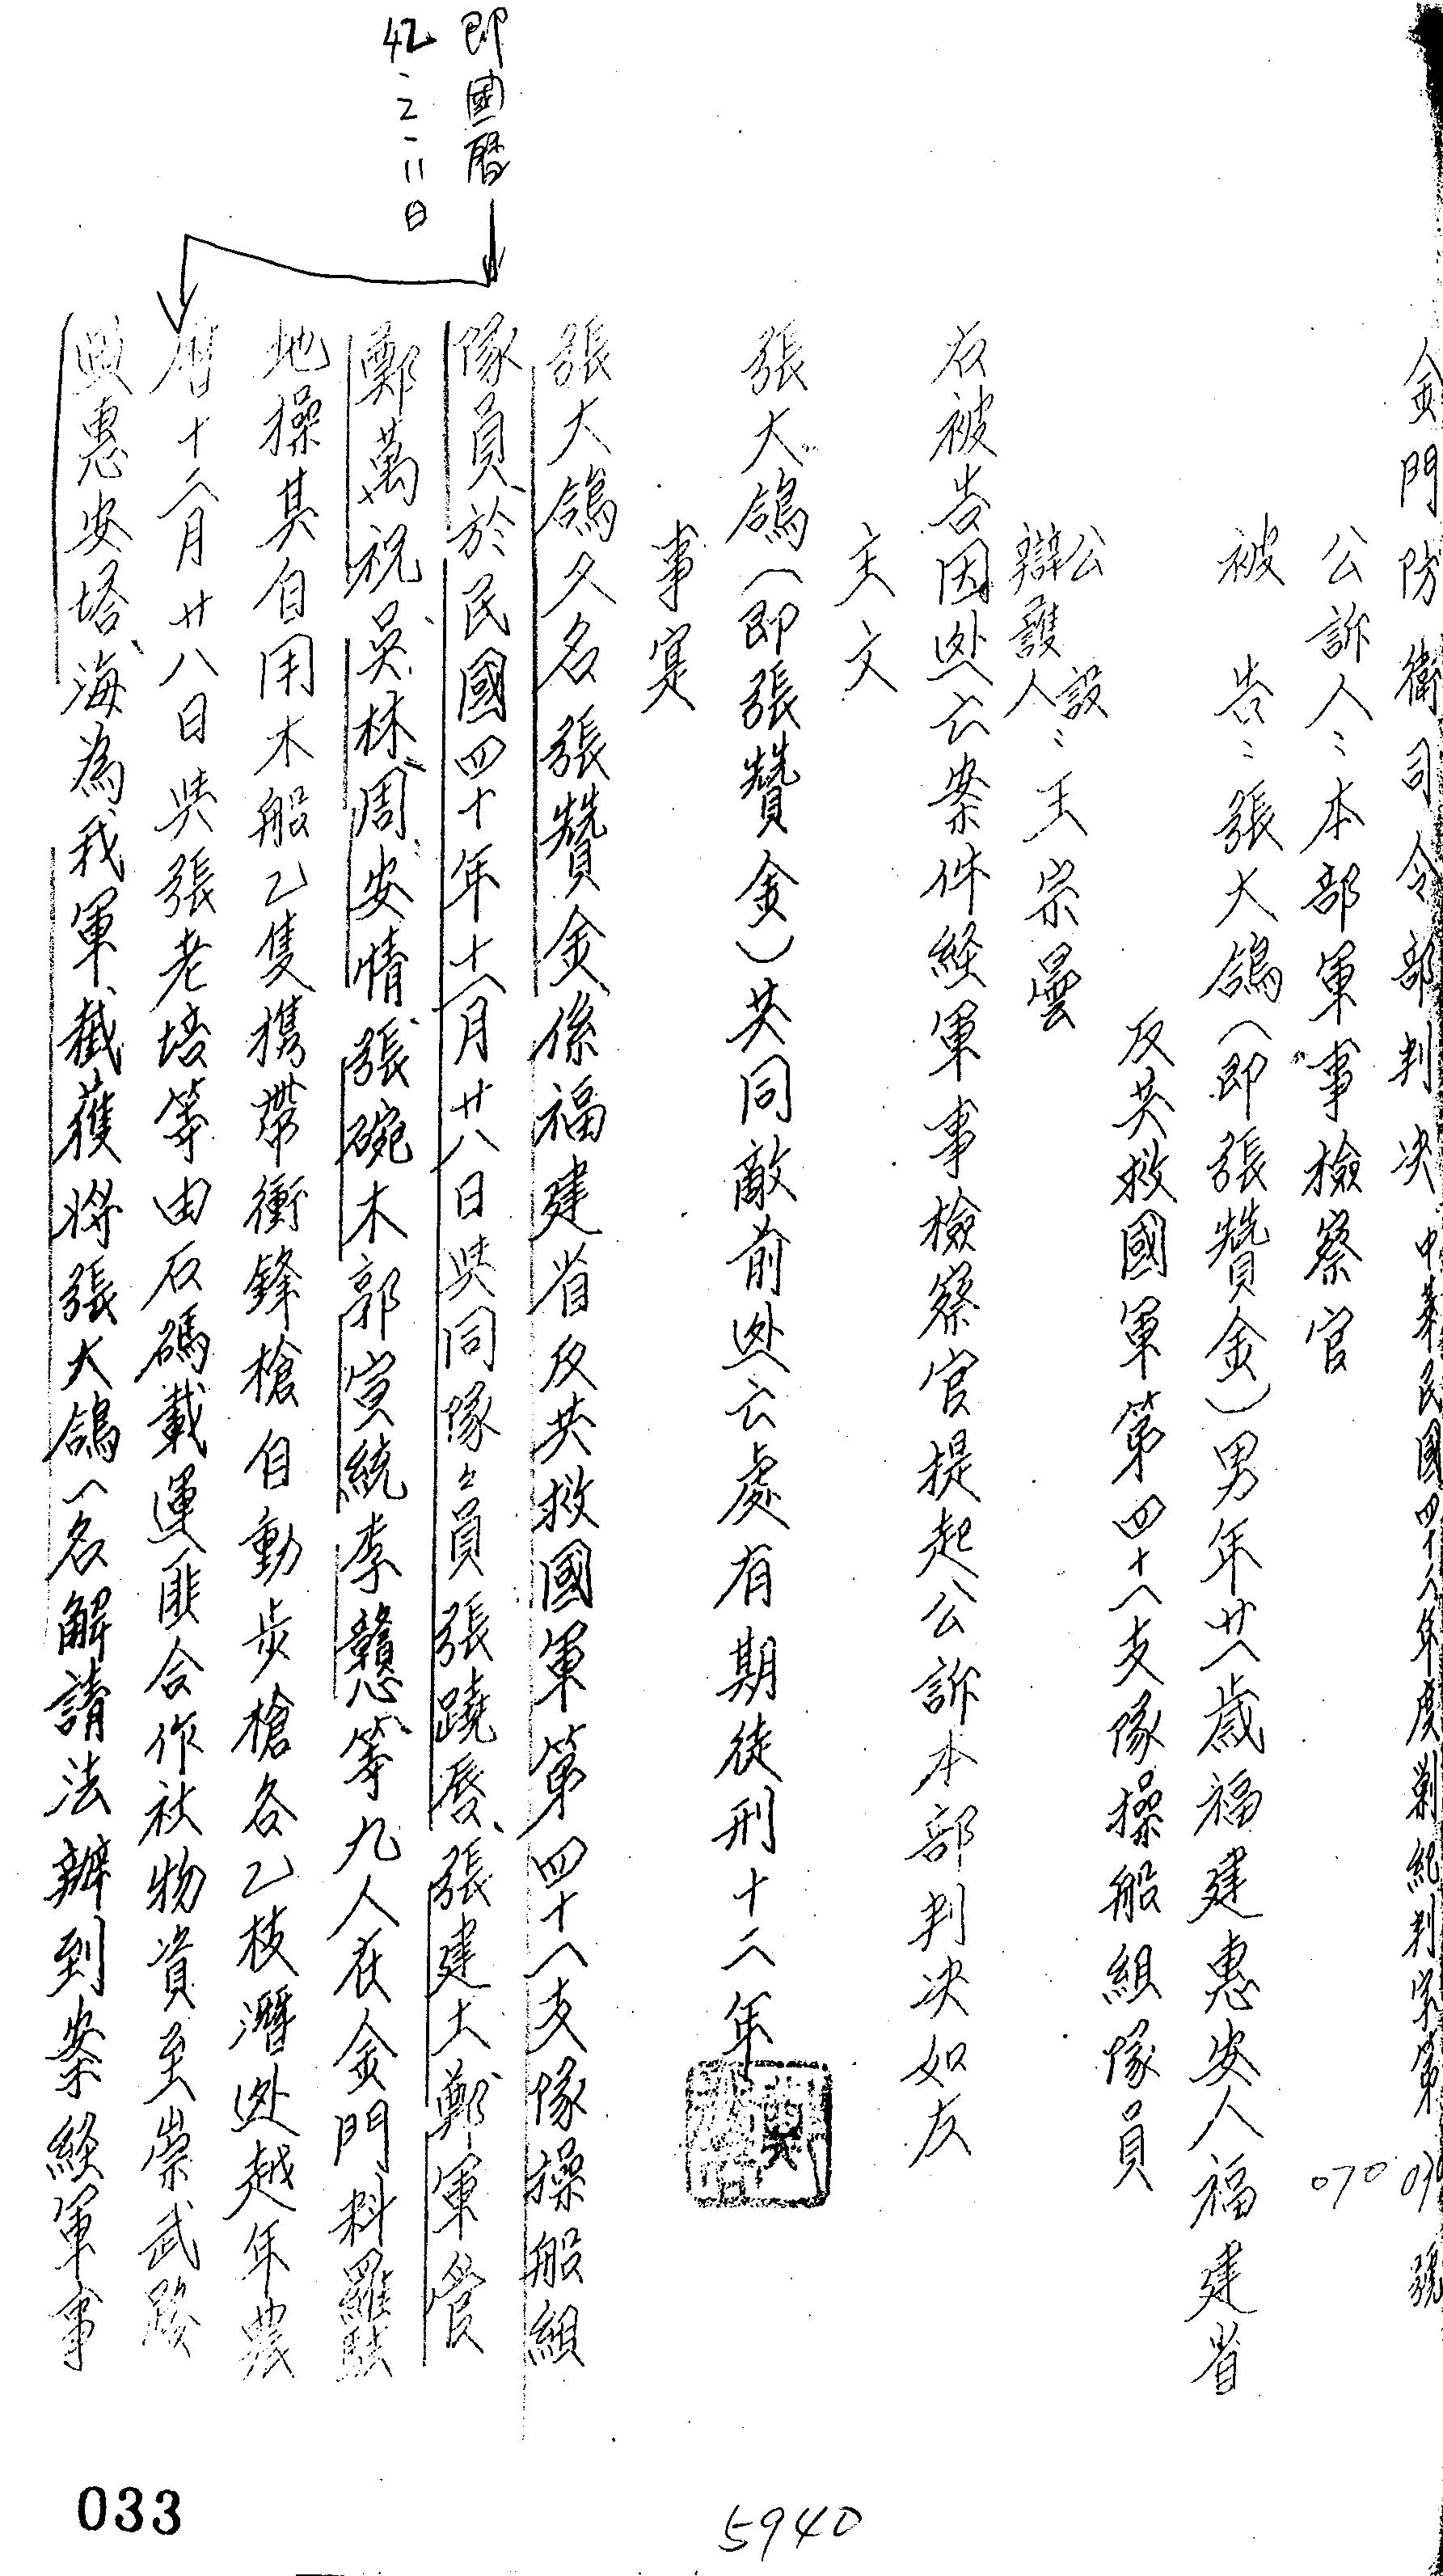 金門防衛司令部判決 中華民國四十八年度 判紀判字第 號
070
公訴人：本部軍事檢察官
被告：張大鴿（即張贊金）男年廿八歲福建惠安人福建省
反共救國軍第四十八支隊操船組隊員
公設辯護人：王宗曇
右被告因逃亡案件経軍事檢察官提起公訴本部判决如左
主文
張大鴿（即張贊金）共同敵前逃亡處有期徒刑十二年
事寔
張大鴿又名張贊金係福建省反共救國軍第四十八支隊操船組
隊員於民國四十年十二月廿八日與同隊々員張蹺唇、張建土鄭軍營
鄭萬祝吳林周安情張碗木郭寅統李戇等九人在金門料羅駐
地操其自用木船乙隻携帶衝鋒槍自動步槍各乙枝潛逃越年農
曆十二月廿八日與張老培等由石碼載運匪合作社物資至崇武路
與惠安塔海為我軍截獲將張大鴿一名解請法辦到案経軍事
即國曆
42.2.11日
5940
033